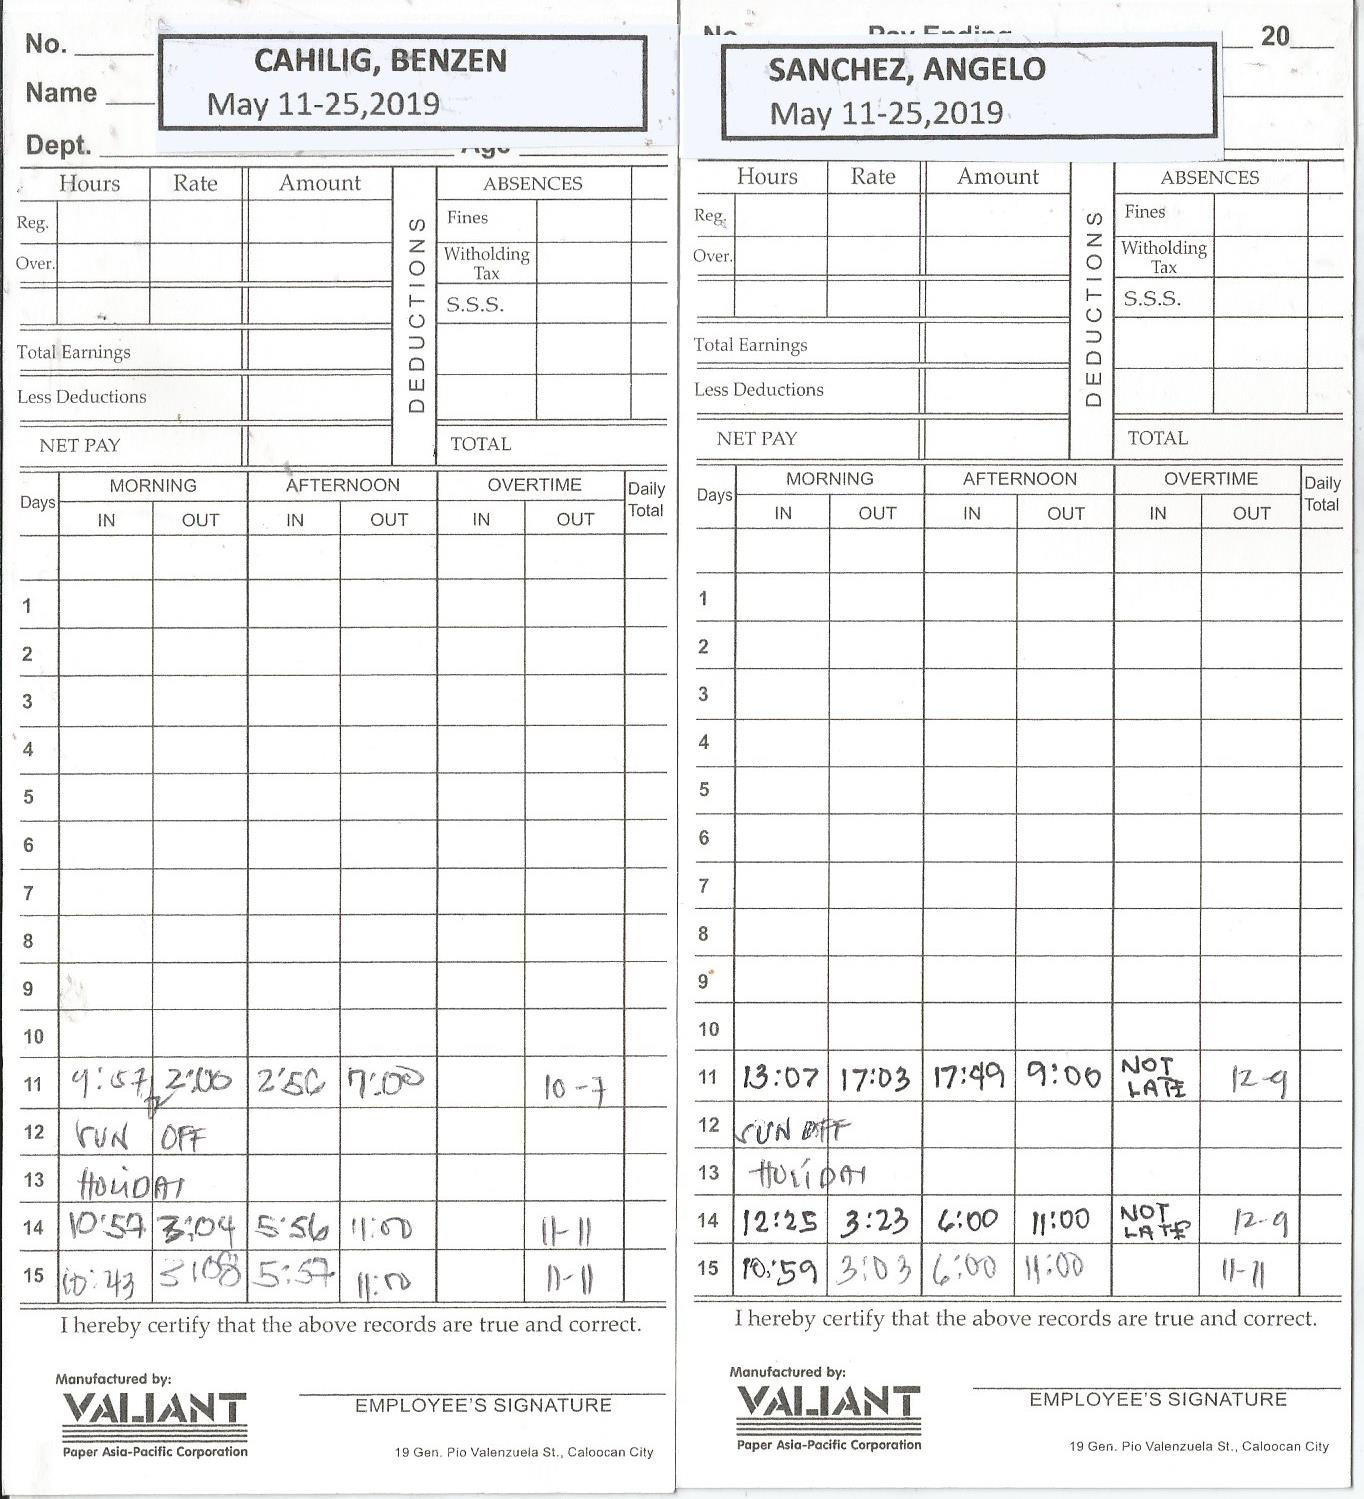 No.
CAHILIG, BENZEN
Name
May 11-25,2019
Dept. Age
Hours Rate Amount DEDUCTIONS ABSENCES
Reg. Fines
Over. Witholding Tax
S.S.S.
Total Earnings
Less Deductions
NET PAY TOTAL
Days MORNING AFTERNOON OVERTIME Daily Total
IN OUT IN OUT IN OUT
1
2
3
4
5
6
7
8
9
10
11 9:57 2:00 2:56 7:00 10-7
12 RUN OFF
13 HOLIDAY
14 10:57 3:04 5:56 11:00 11-11
15 10:43 3:08 5:57 11:00 11-11
I hereby certify that the above records are true and correct.
Manufactured by:
VALIANT
Paper Asia-Pacific Corporation
EMPLOYEE'S SIGNATURE
19 Gen. Pio Valenzuela St., Caloocan City
No. Pay Ending 20
SANCHEZ, ANGELO
May 11-25,2019
Hours Rate Amount DEDUCTIONS ABSENCES
Reg. Fines
Over. Witholding Tax
S.S.S.
Total Earnings
Less Deductions
NET PAY TOTAL
Days MORNING AFTERNOON OVERTIME Daily Total
IN OUT IN OUT IN OUT
1
2
3
4
5
6
7
8
9
10
11 13:07 17:03 17:49 9:00 NOT LATE 12-9
12 RUN OFF
13 HOLIDAY
14 12:25 3:23 6:00 11:00 NOT LATE 12-9
15 10:59 3:03 6:00 11:00 11-11
I hereby certify that the above records are true and correct.
Manufactured by:
VALIANT
Paper Asia-Pacific Corporation
EMPLOYEE'S SIGNATURE
19 Gen. Pio Valenzuela St., Caloocan City